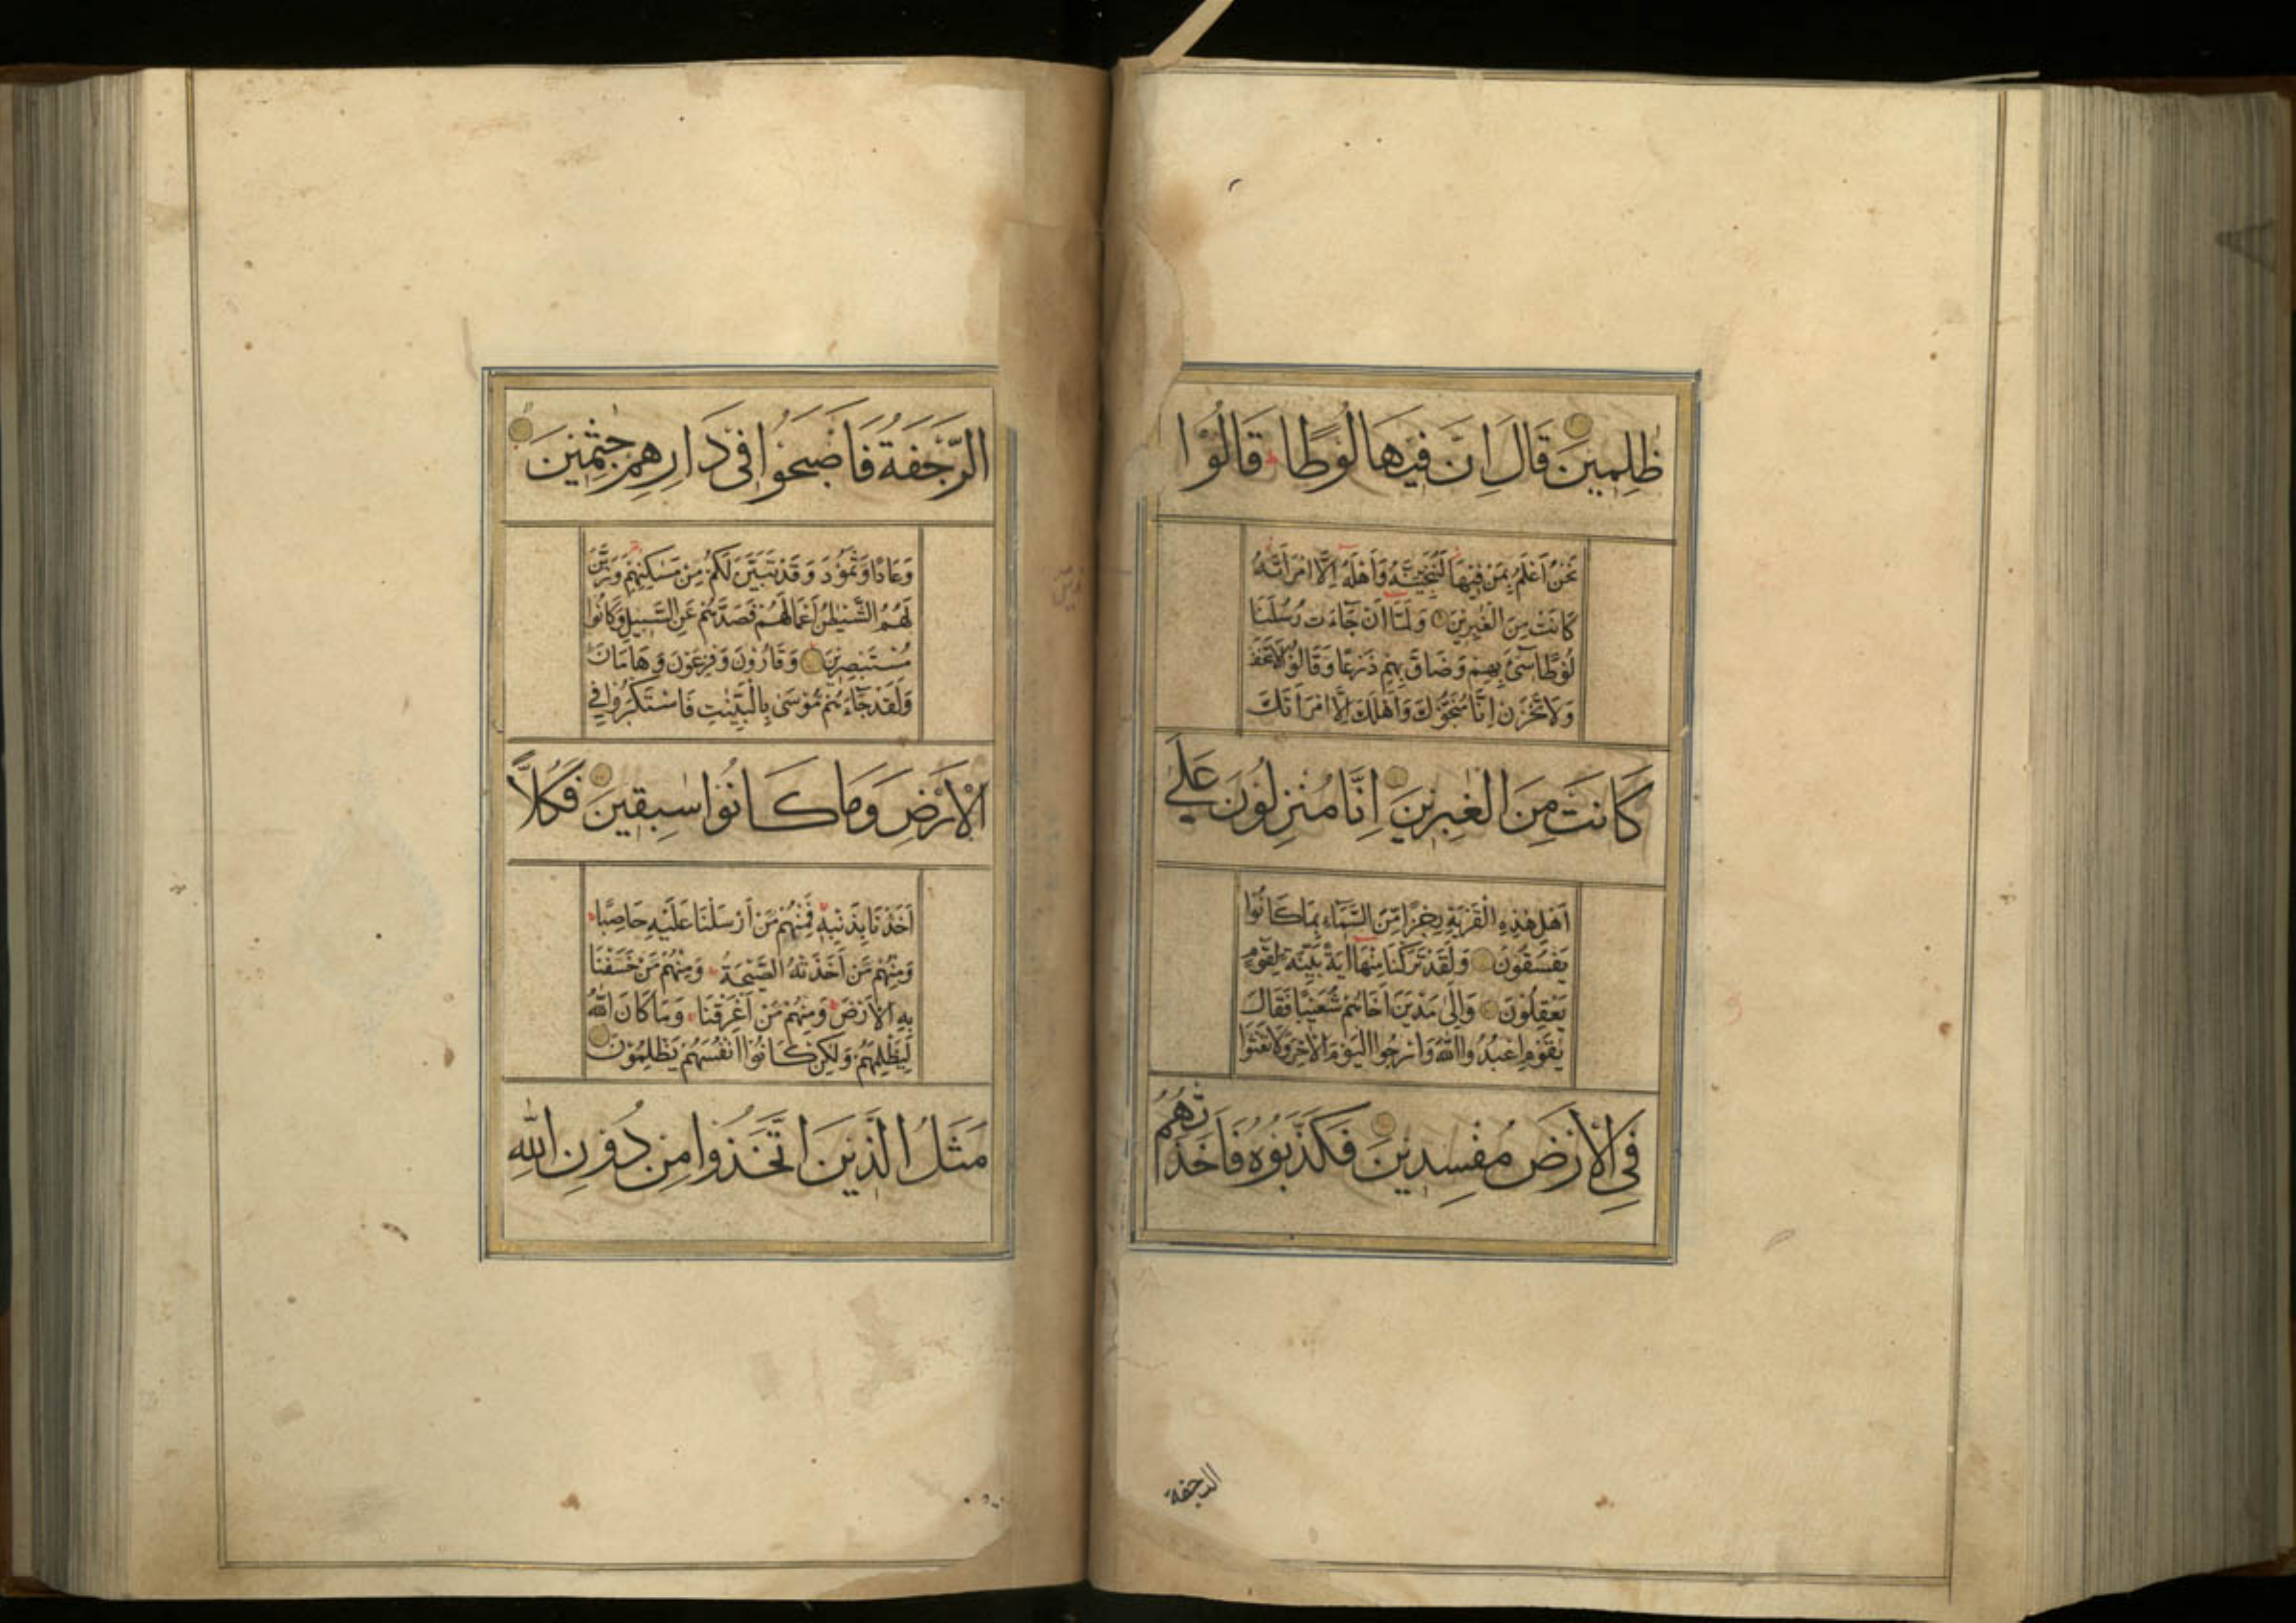 ظٰلِمِينَ قَالَ اِنَّ فِيهَا لُوطًا قَالُوْا
نَحْنُ اَعْلَمُ بِمَنْ فِيْهَا لَنُنَجِّيَنَّهُ وَاَهْلَهُ اِلَّا امْرَاَتَهُ
كَانَتْ مِنَ الْغٰبِرِيْنَ وَلَمَّا اَنْ جَاءَتْ رُسُلُنَا
لُوْطًا سِيْءَ بِهِمْ وَضَاقَ بِهِمْ ذَرْعًا وَقَالُوْا لَا تَخَفْ
وَلَا تَحْزَنْ اِنَّا مُنَجُّوْكَ وَاَهْلَكَ اِلَّا امْرَاَتَكَ
كَانَتْ مِنَ الْغٰبِرِيْنَ اِنَّا مُنْزِلُوْنَ عَلٰى
اَهْلِ هٰذِهِ الْقَرْيَةِ رِجْزًا مِّنَ السَّمَاءِ بِمَا كَانُوْا
يَفْسُقُوْنَ وَلَقَدْ تَرَكْنَا مِنْهَا اٰيَةً بَيِّنَةً لِقَوْمٍ
يَعْقِلُوْنَ وَاِلٰى مَدْيَنَ اَخَاهُمْ شُعَيْبًا فَقَالَ
يٰقَوْمِ اعْبُدُوا اللّٰهَ وَارْجُوا الْيَوْمَ الْاٰخِرَ وَلَا تَعْثَوْا
فِي الْاَرْضِ مُفْسِدِيْنَ فَكَذَّبُوْهُ فَاَخَذَتْهُمُ
الرجفة
الرَّجْفَةُ فَاَصْبَحُوْا فِيْ دَارِهِمْ جٰثِمِيْنَ
وَعَادًا وَثَمُوْدَ وَقَدْ تَبَيَّنَ لَكُمْ مِنْ مَسٰكِنِهِمْ وَزَيَّنَ
لَهُمُ الشَّيْطٰنُ اَعْمَالَهُمْ فَصَدَّهُمْ عَنِ السَّبِيْلِ وَكَانُوْا
مُسْتَبْصِرِيْنَ وَقَارُوْنَ وَفِرْعَوْنَ وَهَامَانَ
وَلَقَدْ جَاءَهُمْ مُوْسٰى بِالْبَيِّنٰتِ فَاسْتَكْبَرُوْا فِي
الْاَرْضِ وَمَا كَانُوْا سٰبِقِيْنَ فَكُلًّا
اَخَذْنَا بِذَنْبِهٖ فَمِنْهُمْ مَنْ اَرْسَلْنَا عَلَيْهِ حَاصِبًا
وَمِنْهُمْ مَنْ اَخَذَتْهُ الصَّيْحَةُ وَمِنْهُمْ مَنْ خَسَفْنَا
بِهِ الْاَرْضَ وَمِنْهُمْ مَنْ اَغْرَقْنَا وَمَا كَانَ اللّٰهُ
لِيَظْلِمَهُمْ وَلٰكِنْ كَانُوْا اَنْفُسَهُمْ يَظْلِمُوْنَ
مَثَلُ الَّذِيْنَ اتَّخَذُوْا مِنْ دُوْنِ اللّٰهِ